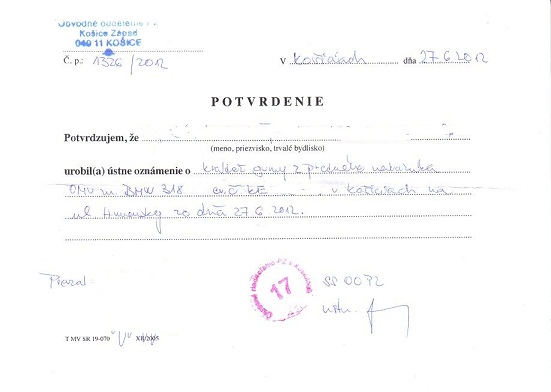 Obvodné oddelenie PZ
Košice Západ
040 11 KOŠICE
Č. p.: 1326/2012
V Košiciach dňa 27.6.2012
POTVRDENIE
Potvrdzujem, že
(meno, priezvisko, trvalé bydlisko)
urobil(a) ústne oznámenie o krádež gumy z predného nárazníka
OMV zn. BMW 318 ev.č. KE - v Košiciach na
ul. zo dňa 27.6.2012.
Prevzal:
17
T MV SR 19-070 "V" XII/2005